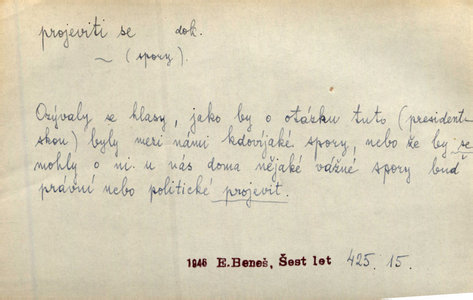 projeviti se dok.
~ (spory).
Ozývaly se hlasy, jako by o otázku tuto (president-
skou) byly mezi námi kdovíjaké spory, nebo že by se
mohly o ni u nás doma nějaké vážné spory buď
právní nebo politické projevit.
1946 E. Beneš, Šest let 425. 15.